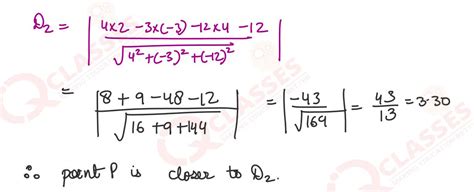 D₂ = | (4×2 - 3×(-3) - 12×4 - 12) / √(4² + (-3)² + (-12)²) |
= | (8 + 9 - 48 - 12) / √(16 + 9 + 144) | = | -43 / √169 | = 43/13 = 3.30
∴ point P is closer to D₂.
CLASSES
CLASSES
CLASSES